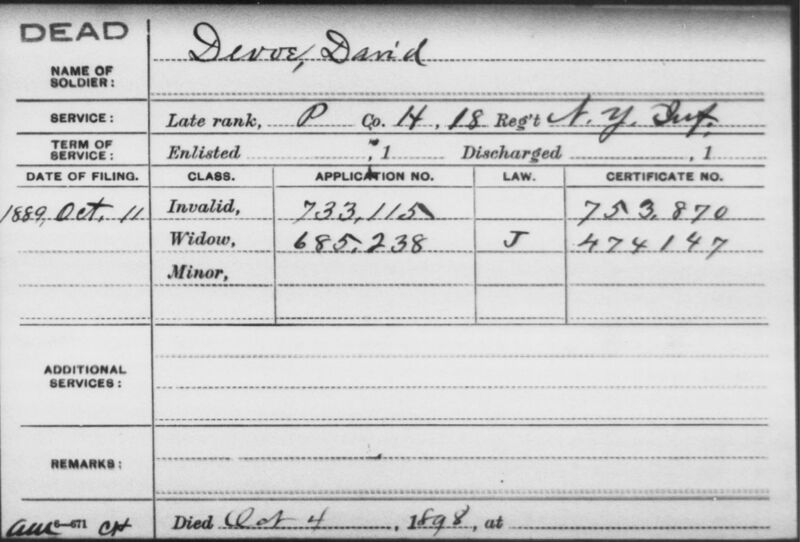 DEAD
NAME OF SOLDIER: Devoe, David
SERVICE: Late rank, P Co. H, 18 Reg't N. Y. Inf.
TERM OF SERVICE: Enlisted , 1 Discharged , 1
DATE OF FILING. CLASS. APPLICATION NO. LAW. CERTIFICATE NO.
1889, Oct. 11 Invalid, 733,115 753,870
Widow, 685,238 J 474147
Minor,
ADDITIONAL SERVICES:
REMARKS:
6-671 Died Oct 4, 1898, at